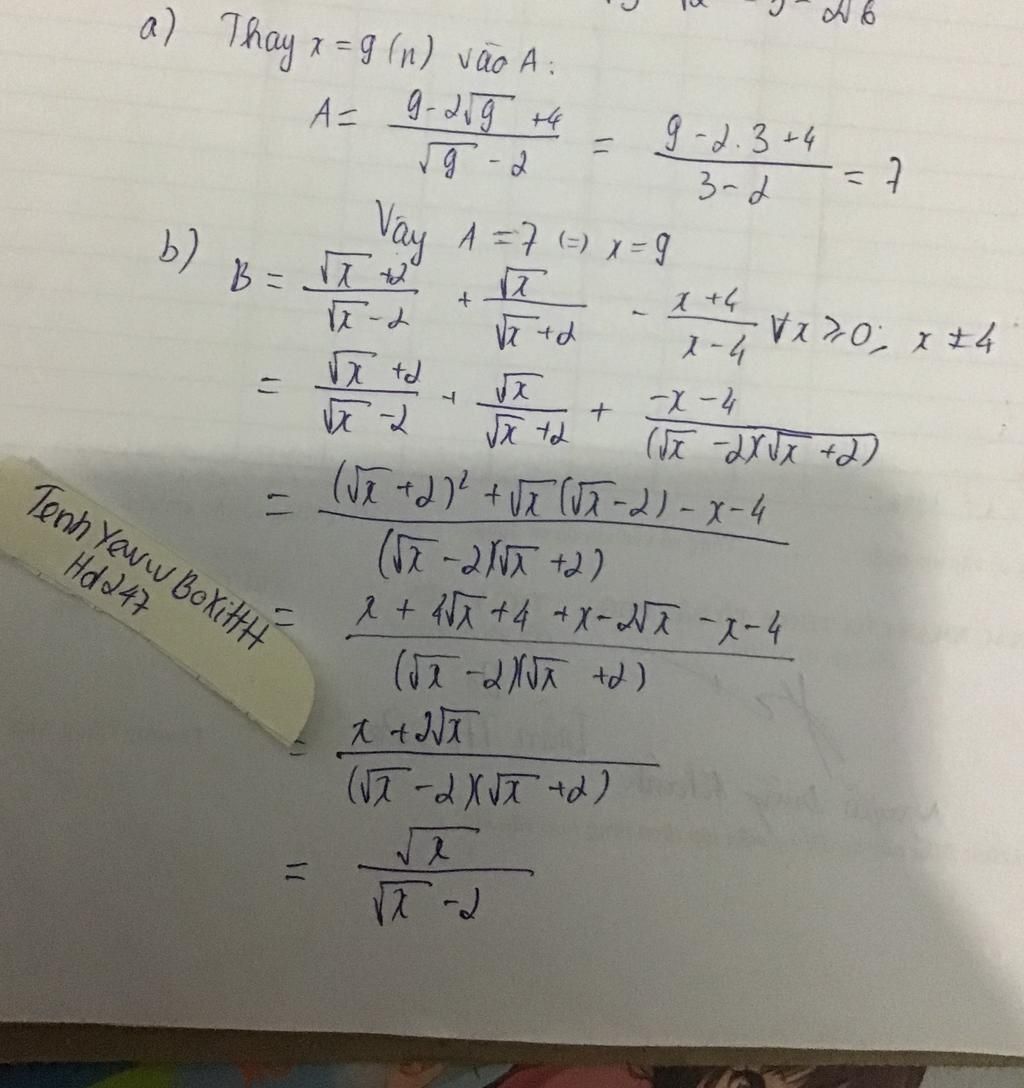 2√6
a) Thay x = 9 (n) vào A:
A = (9 - 2√9 + 4)/(√9 - 2) = (9 - 2.3 + 4)/(3 - 2) = 7
Vậy A = 7 (=) x = 9
b) B = (√x + 2)/(√x - 2) + √x/(√x + 2) - (x + 4)/(x - 4) ∀x ≥ 0; x ≠ 4
= (√x + 2)/(√x - 2) + √x/(√x + 2) + (-x - 4)/((√x - 2)(√x + 2))
= ((√x + 2)² + √x(√x - 2) - x - 4)/((√x - 2)(√x + 2))
= (x + 4√x + 4 + x - 2√x - x - 4)/((√x - 2)(√x + 2))
= (x + 2√x)/((√x - 2)(√x + 2))
= √x/(√x - 2)
Hd247